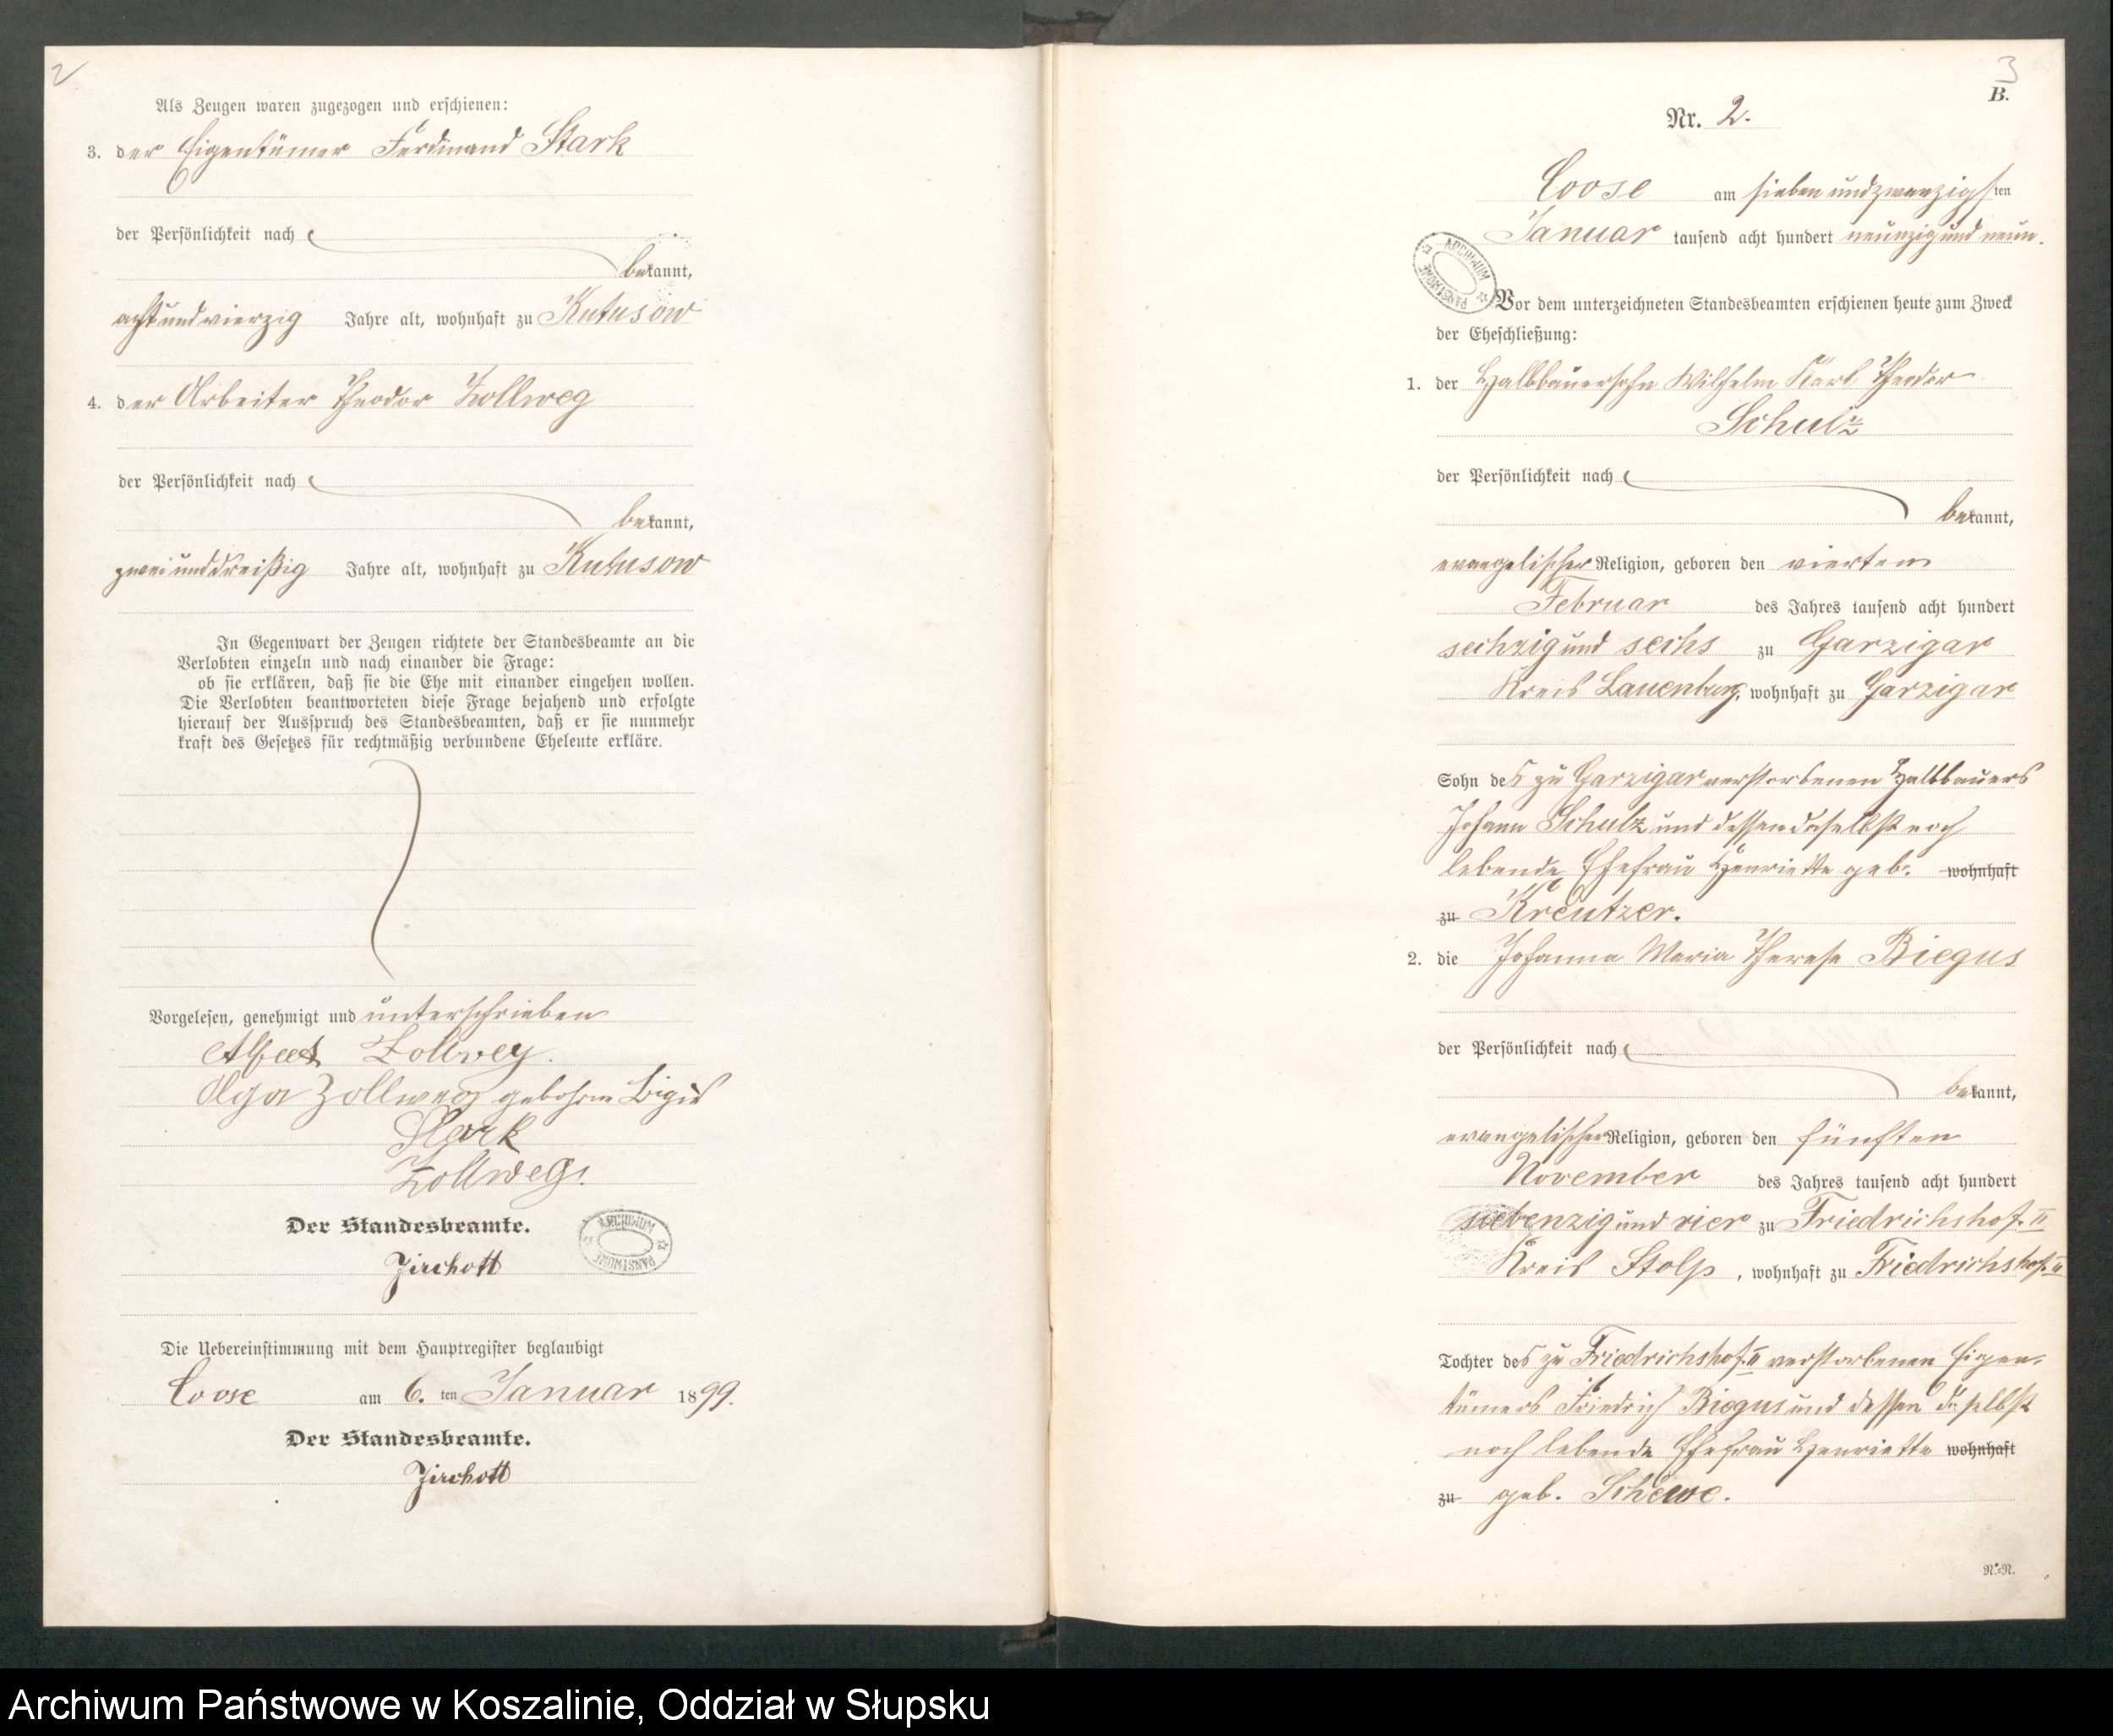 2
Als Zeugen waren zugezogen und erschienen:
3. der Eigentümer Ferdinand Stark
der Persönlichkeit nach
bekannt,
achtundvierzig Jahre alt, wohnhaft zu Kutusow
4. der Arbeiter Theodor Zollweg
der Persönlichkeit nach
bekannt,
zweiunddreißig Jahre alt, wohnhaft zu Kutusow
In Gegenwart der Zeugen richtete der Standesbeamte an die
Verlobten einzeln und nach einander die Frage:
ob sie erklären, daß sie die Ehe mit einander eingehen wollen.
Die Verlobten beantworteten diese Frage bejahend und erfolgte
hierauf der Ausspruch des Standesbeamten, daß er sie nunmehr
kraft des Gesetzes für rechtmäßig verbundene Eheleute erkläre.
Vorgelesen, genehmigt und unterschrieben
Zollweg.
Olga Zollweg
Stark
Zollweg.
Der Standesbeamte.
ARCHIWUM PAŃSTWOWE
Zirchott
Die Uebereinstimmung mit dem Hauptregister beglaubigt
Coose am 6. ten Januar 1899.
Der Standesbeamte.
Zirchott
3
B.
Nr. 2.
Coose am sieben und zwanzigsten
Januar tausend acht hundert neunzig und neun.
ARCHIWUM PAŃSTWOWE
Vor dem unterzeichneten Standesbeamten erschienen heute zum Zweck
der Eheschließung:
1. der Halbbauersohn Wilhelm Karl Theodor
Schulz
der Persönlichkeit nach
bekannt,
evangelischer Religion, geboren den vierten
Februar des Jahres tausend acht hundert
sechzig und sechs zu Garzigar
Kreis Lauenburg, wohnhaft zu Garzigar
Sohn des zu Garzigar verstorbenen Halbbauers
Johann Schulz und dessen daselbst noch
lebende Ehefrau Henriette geb. wohnhaft
zu Kreutzer.
2. die Johanna Maria Therese Biegus
der Persönlichkeit nach
bekannt,
evangelischer Religion, geboren den fünften
November des Jahres tausend acht hundert
siebenzig und vier zu Friedrichshof. II
Kreis Stolp, wohnhaft zu Friedrichshof. II
Tochter des zu Friedrichshof. II verstorbenen Eigen-
tümers Friedrich Biegus und dessen daselbst
noch lebende Ehefrau Henriette wohnhaft
zu geb. Schewe.
N.=R.
Archiwum Państwowe w Koszalinie, Oddział w Słupsku